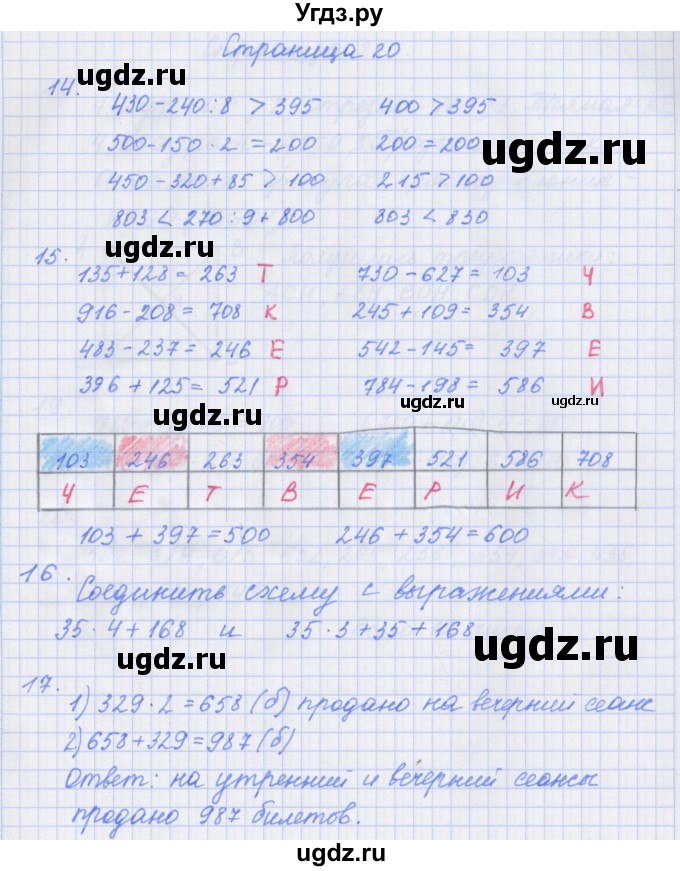 Угдз.ру
Страница 20
ugdz.ru
14. 430-240:8 > 395   400 > 395
500-150·2 = 200   200 = 200
ugdz.ru
ugdz.ru
450-320+85 > 100   215 > 100
803 < 270:9+800   803 < 830
ugdz.ru
15. 135+128 = 263 Т   730-627 = 103 Ч
916-208 = 708 К   245+109 = 354 В
483-237 = 246 Е   542-145 = 397 Е
396+125 = 521 Р   784-198 = 586 И
ugdz.ru
ugdz.ru
103 246 263 354 397 521 586 708
Ч Е Т В Е Р И К
103+397=500   246+354=600
16. Соединить схему с выражениями:
35·4+168 и 35·3+35+168
ugdz.ru
ugdz.ru
17. 1) 329·2=658 (б) продано на вечерний сеанс
2) 658+329=987 (б)
ugdz.ru
Ответ: на утренний и вечерний сеансы
продано 987 билетов.
ugdz.ru
ugdz.ru